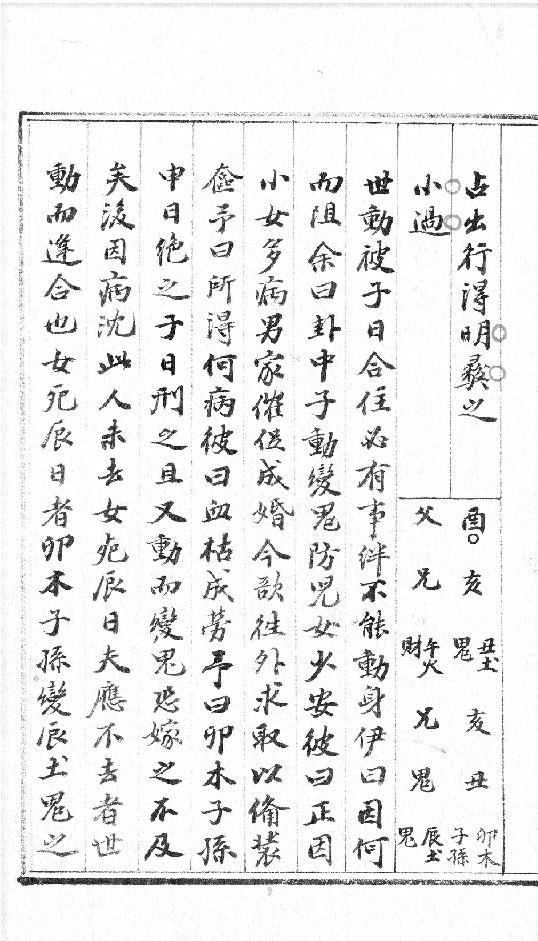 占出行得明彜之
小過
酉 亥 丑土 亥 丑 卯木
鬼 子孫
父 兄 午火 兄 鬼 辰土
財 鬼
世動被子日合住必有事絆不能動身伊曰因何
而阻余曰卦中子動變鬼防兒女少安彼曰正因
小女多病男家催促成婚今欲往外求取以俻裝
奩予曰所得何病彼曰血枯成勞予曰卯木子孫
申日絶之子日刑之且又動而變鬼恐嫁之不及
矣後因病沈此人未去女死辰日夫應不去者世
動而逢合也女死辰日者卯木子孫變辰土鬼之